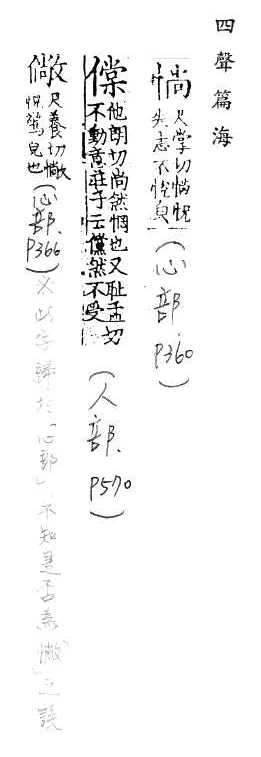 四聲篇海
惝尺掌切惝怳失志不悅皃（心部．P360）
儻他朗切尚然惘也又耻孟切不動意莊子云儻然不受（人部．P570）
㒈尺養切㒈怳驚皃也（心部．P366）※此字歸於「心部」不知是否為「憿」之誤